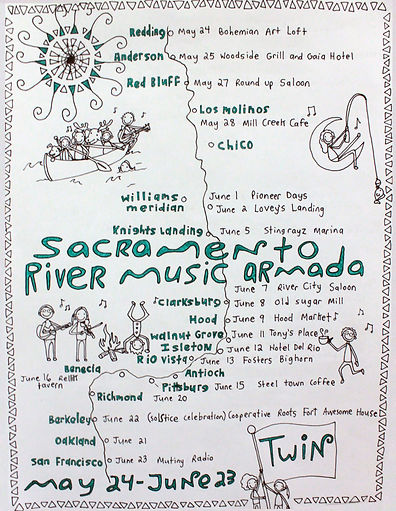 Redding May 24 Bohemian Art Loft
Anderson May 25 Woodside Grill and Gaia Hotel
Red Bluff May 27 Round up Saloon
Los Molinos
May 28 Mill Creek Cafe
Chico
Williams June 1 Pioneer Days
meridian June 2 Lovey's Landing
Knights Landing June 5 Stingrayz Marina
Sacramento
River Music Armada
June 7 River City Saloon
Clarksburg June 8 Old Sugar Mill
Hood June 9 Hood Market
Walnut Grove June 11 Tony's Place
Isleton June 12 Hotel Del Rio
Rio Vista June 13 Fosters Bighorn
Benecia Antioch
June 16 Rellik
tavern
Pittsburg June 15 Steel town coffee
Richmond June 20
Berkeley June 22 (Solstice celebration) Cooperative Roots Fort Awesome House
Oakland June 21
San Francisco June 23 Mutiny Radio
TWIN
May 24-June 23